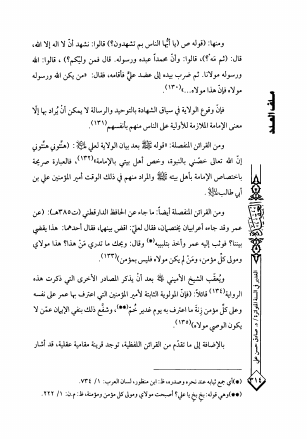 ومنها: (قوله ص (يا أيُّها الناس بم تشهدون؟) قالوا: نشهد أنْ لا اله إلا الله،
قال: (ثم مَه؟)، قالوا: وأنّ محمداً عبده ورسوله. قال: فمن وليّكم؟)، قالوا: الله
ورسوله مولانا. ثم ضرب بيده إلى عضد عليٍّ فأقامه، فقال: «من يكن الله ورسوله
مولاه فإنّ هذا مولاه...» (١٣٠).
فإنّ وقوع الولاية في سياق الشهادة بالتوحيد والرسالة لا يمكن أنْ يُراد بها إلّا
معنى الإمامة الملازمة للأولية على الناس منهم بأنفسهم (١٣١).
ومن القرائن المنفصلة: «قوله بعد بيان الولاية لعلي: (هنّئوني هنّئوني
إنّ الله تعالى خصّني بالنبوة، وخص أهل بيتي بالإمامة) (١٣٢)، فالعبارة صريحة
باختصاص الإمامة بأهل بيته والمراد منهم في ذلك الوقت أمير المؤمنين علي بن
أبي طالب.
ومن القرائن المنفصلة أيضاً: ما جاء عن الحافظ الدارقطني (ت٣٨٥هـ): (عن
عمر وقد جاءه أعرابيان يختصمان، فقال لعليّ: اقضِ بينهما، فقال أحدهما: هذا يقضي
بيننا؟ فوثب إليه عمر وأخذ بتلبيبه(*) وقال: ويحك ما تدري مَنْ هذا؟ هذا مولاي
ومولى كلّ مؤمن، ومَنْ لم يكن مولاه فليس بمؤمن) (١٣٣)
ويُعقّب الشيخ الأميني بعد أنْ يذكر المصادر الأخرى التي ذكرت هذه
الرواية (١٣٤) قائلاً: (فإنّ المولوية الثابتة لأمير المؤمنين التي اعترف بها عمر على نفسه
وعلى كلّ مؤمن زِنةَ ما اعترف به يوم غدير خُمّ(**)، وشفّع ذلك بنفي الإيمان عمّن لا
يكون الوصي مولاه) (١٣٥).
بالإضافة إلى ما تقدّم من القرائن اللفظية، توجد قرينة مقامية عقلية، قد أشار
(*) أي جمع ثيابه عند نحره وصدره، ظ: ابن منظور: لسان العرب: ١/ ٧٣٤.
(**) وهي قوله: بخٍ بخٍ يا علي؟ أصبحت مولاي ومولى كل مؤمن ومؤمنة، ظ: م.ن: ١/ ٢٢٢.
ملف العدد
الغدير في السنة المتواترة / د. صادق حسن علي
٣١٤